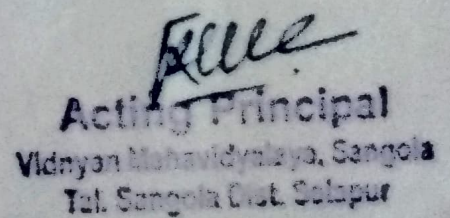 Acting Principal
Vidnyan Mahavidyalaya, Sangola
Tal. Sangola Dist. Solapur